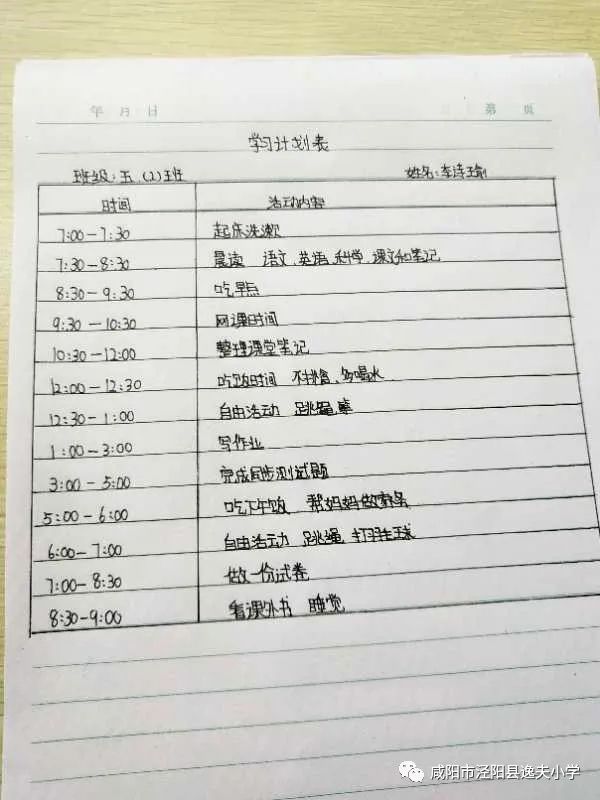 年 月 日 第 页
学习计划表
班级:五.(2)班 姓名:李诗瑜
时间 活动内容
7:00-7:30 起床洗漱
7:30-8:30 晨读 语文、英语、科学、课文和笔记
8:30-9:30 吃早点
9:30-10:30 网课时间
10:30-12:00 整理课堂笔记
12:00-12:30 吃饭时间 不挑食,多喝水
12:30-1:00 自由活动 跳绳,
1:00-3:00 写作业
3:00-5:00 完成同步测试题
5:00-6:00 吃下午饭 帮妈妈做家务
6:00-7:00 自由活动 跳绳 打羽毛球
7:00-8:30 做一份试卷
8:30-9:00 看课外书 睡觉
咸阳市泾阳县逸夫小学